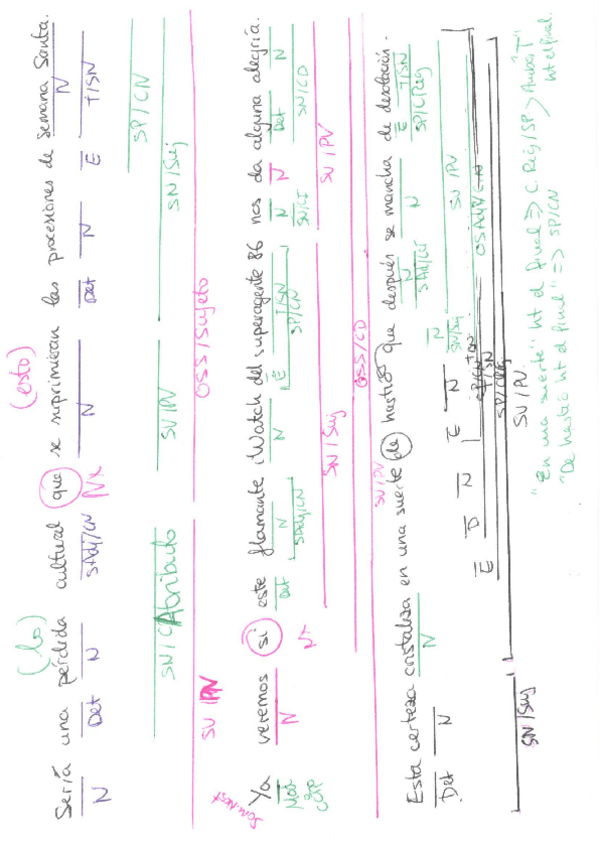 (lo) (esto)
Sería una pérdida cultural que se suprimieran las procesiones de Semana Santa.
N Det N SAdj/CN Nx N Det N E N
T/SN
SP/CN
SN/CAtributo SV/PV SN/Suj
SV/PV OSS/Sujeto
Ya veremos si este flamante iWatch del superagente 86 nos da alguna alegría.
N Nx Det N N E T/SN N N Det N
SAdj/CN SP/CN SN/CI SN/CD
SN/Suj SV/PV
OSS/CD
SV/PV
Esta certeza cristaliza en una suerte de hastío que después se mancha de desolación.
Det N N E D N E N N N N E T/SN
SN/Suj SAdv/CCT SP/CReg
SV/PV
OSAdj/CN
SP/CN T/SN
SP/CReg
SN/Suj SV/PV
"En una suerte" ht el final => C. Reg/SP > Ambos "T" ht el final.
"De hastío ht el final" => SP/CN